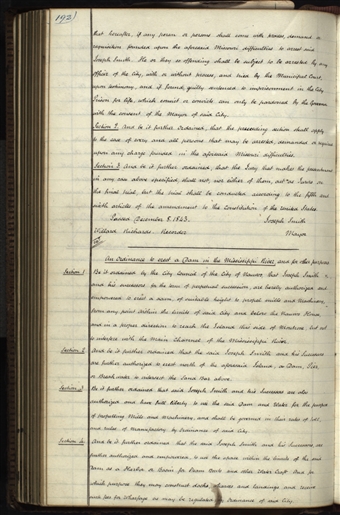 192
that hereafter, if any person or persons shall come with process, demand or
requisition founded upon the aforesaid Missouri difficulties to arrest said
Joseph Smith. He or they so offending shall be subject to be arrested by any
officer of the City, with or without process, and tried by the Municipal Court,
upon testimony, and if found guilty sentenced to imprisonment in the City
Prison for life, which convict or convicts can only be pardoned by the Governor
with the consent of the Mayor of said City.
Section 2. And be it further Ordained, that the preceding section shall apply
to the case of every and all persons that may be arrested, demanded or required
upon any charge founded in the aforesaid Missouri difficulties.
Section 3. And be it further ordained, that the Jury that makes the presentment
in any case above specified, shall not, nor either of them, act as Jurors on
the final trial, but the trial shall be conducted according to the fifth and
sixth articles of the amendment to the Constitution of the United States.
Passed December 8, 1843. Joseph Smith
Willard Richards. Recorder Mayor
An Ordinance to erect a Dam in the Mississippi River, and for other purposes
Section 1. Be it ordained by the City Council of the City of Nauvoo, that Joseph Smith
and his successors for the term of perpetual succession, are hereby authorized and
empowered to erect a dam, of suitable height to propel mills and Machinery
from any point within the limits of said City and below the Nauvoo House
and in a proper direction to reach the Island this side of Montrose, but not
to interfere with the Main Channel of the Mississippi River.
Section 2. And be it further ordained that the said Joseph Smith and his Successors
are further authorized to erect north of the aforesaid Island, a Dam, Pier,
or Breakwater to intersect the Sand Bar above.
Section 3. Be it further ordained that said Joseph Smith and his Successors are also
authorized and have full liberty to use the said Dam and Water for the purpose
of propelling Mills and Machinery, and shall be governed in their rates of toll,
and rates of Manufactory by Ordinance of said City.
Section 4. And be it further ordained that the said Joseph Smith and his Successors are
further authorized and empowered, to use the space within the limits of the said
Dam as a Harbor or Basin for Steam Boats and other Water Craft. And for
which purpose they may construct docks, wharves and landings and receive
such fees for Wharfage as may be regulated by Ordinance of said City.